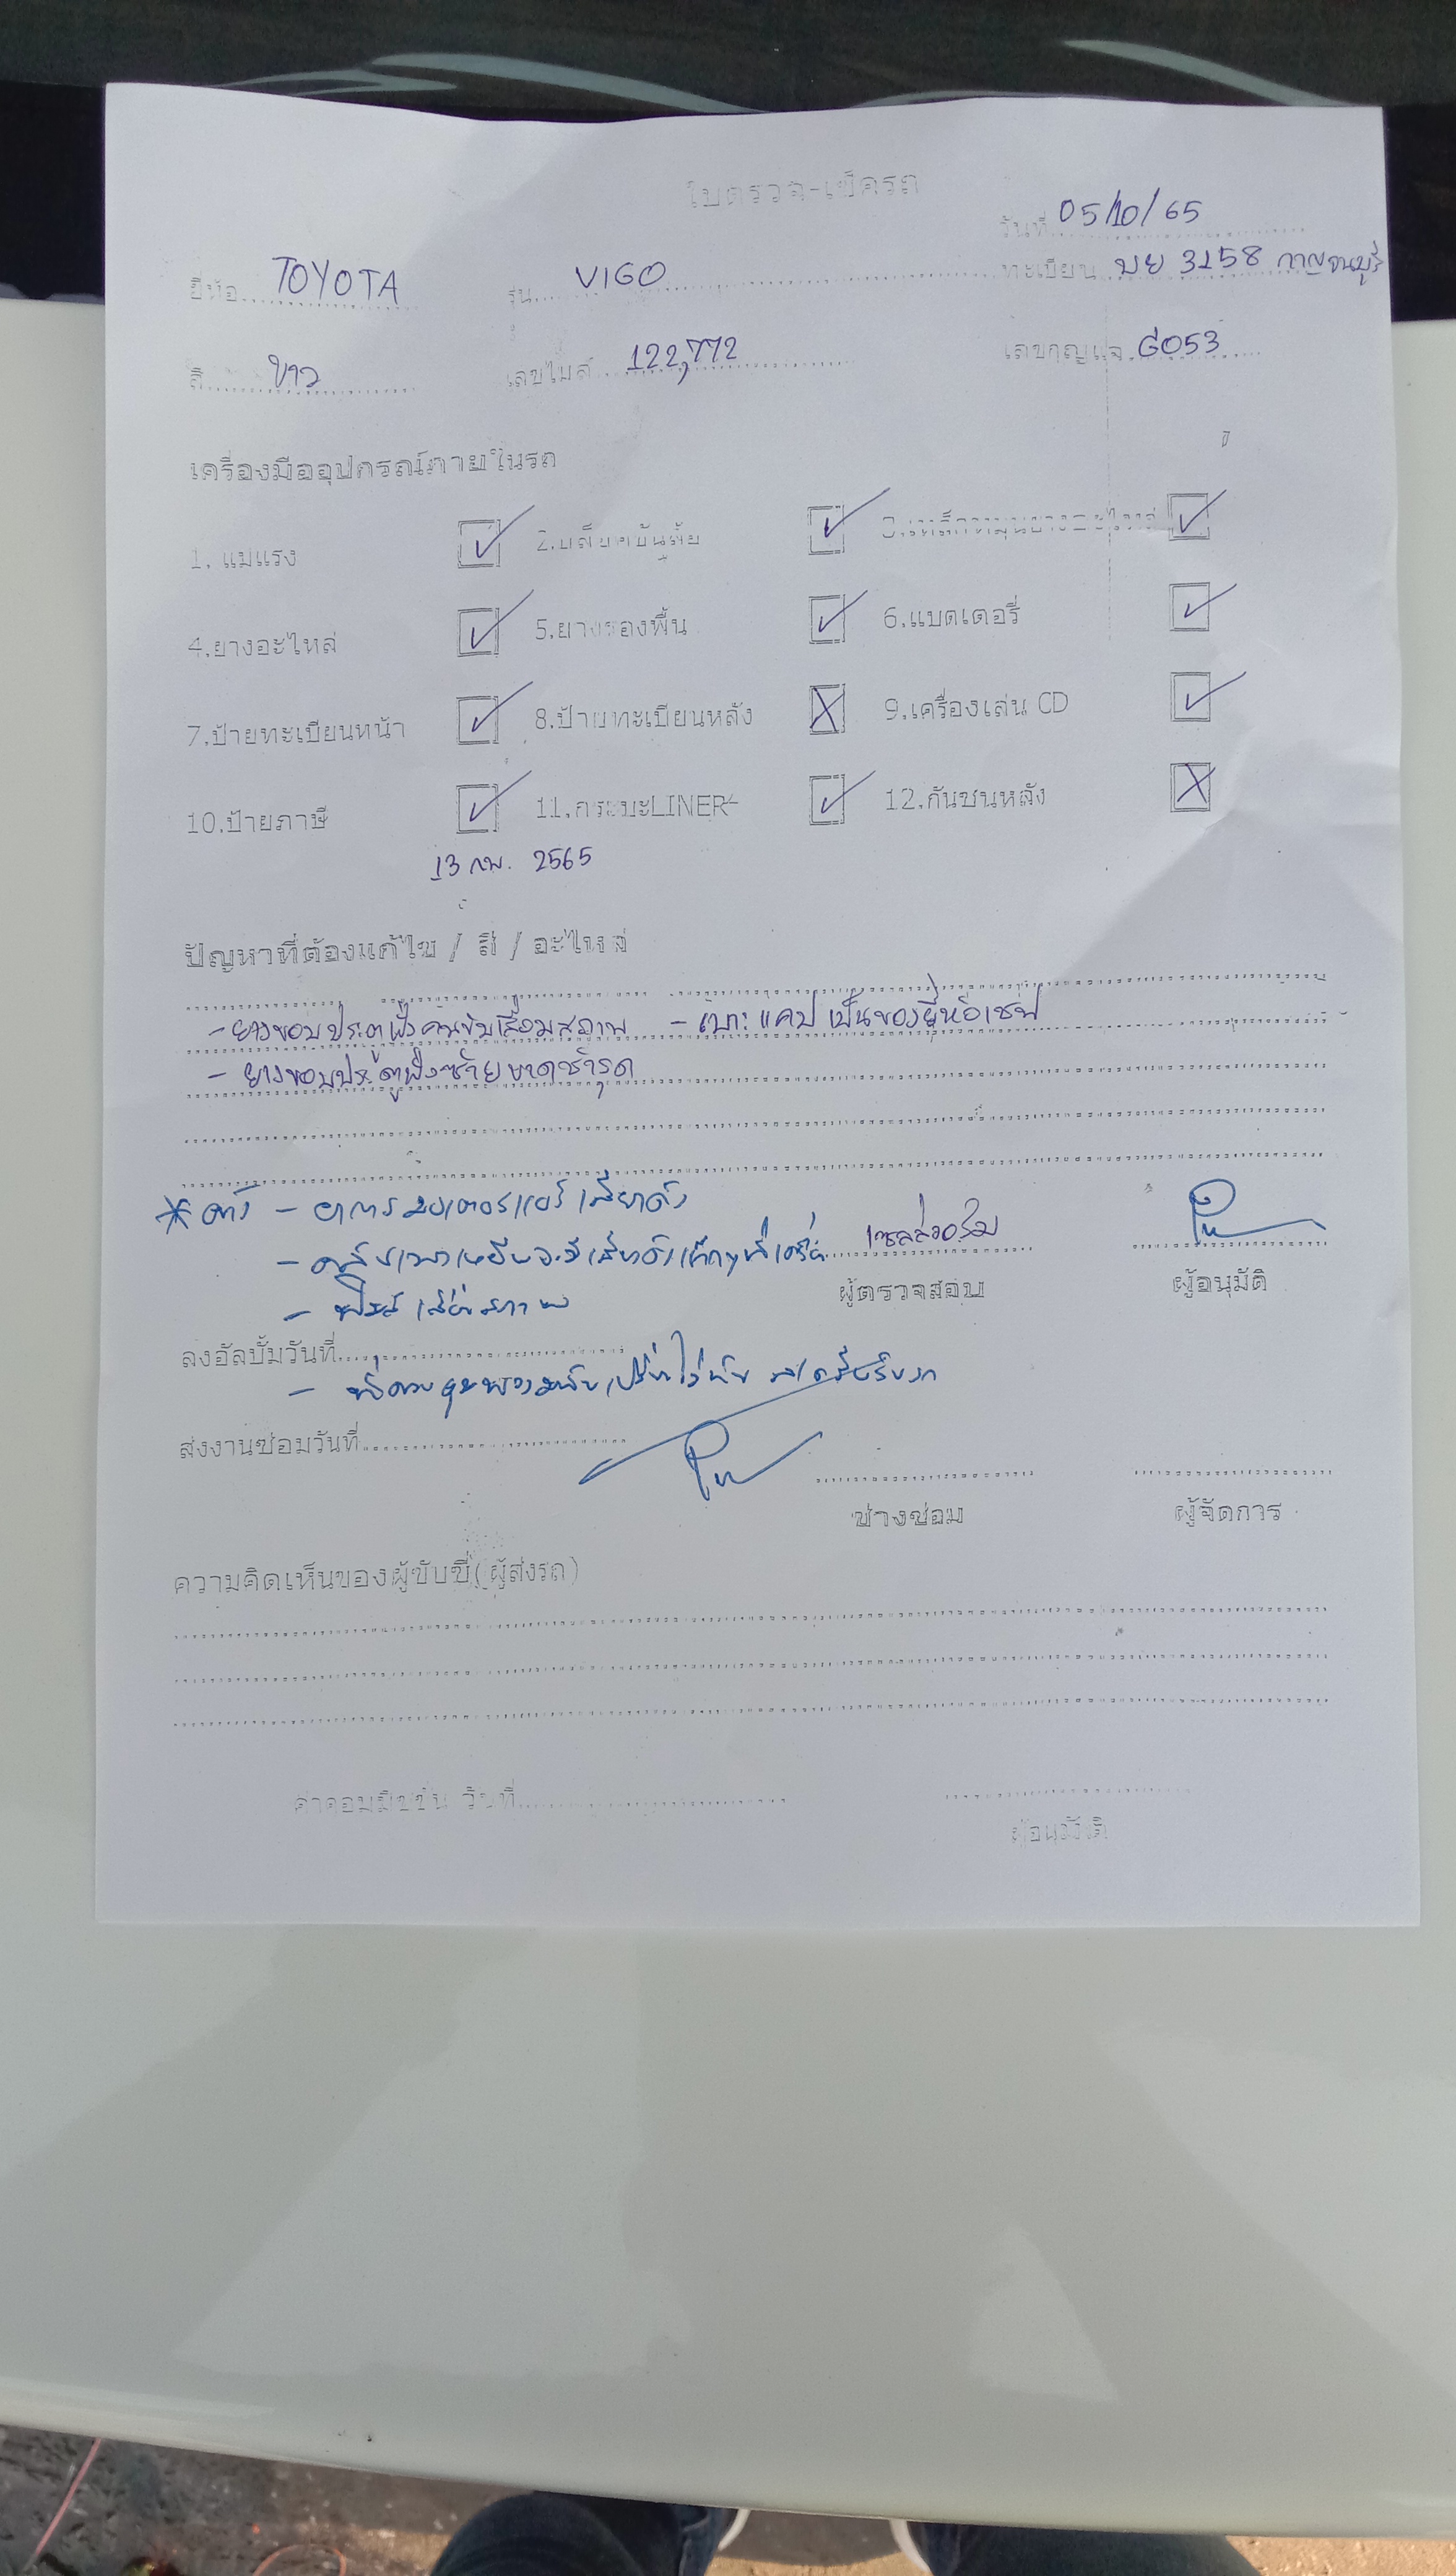 ใบตรวจ-เช็ครถ
วันที่ 05/10/65
ยี่ห้อ TOYOTA รุ่น VIGO ทะเบียน บย 3158 กาญจนบุรี
สี ขาว เลขไมล์ 122,772 เลขกุญแจ G053
เครื่องมืออุปกรณ์ภายในรถ
1. แม่แรง 2.บล็อคขันล้อ
4.ยางอะไหล่ 5.ยางรองพื้น 6.แบตเตอรี่
7.ป้ายทะเบียนหน้า 8.ป้ายทะเบียนหลัง 9.เครื่องเล่น CD
10.ป้ายภาษี 11.กระบะLINER 12.กันชนหลัง
13 กพ. 2565
ปัญหาที่ต้องแก้ไข / สี / อะไหล่
- ยางขอบประตูฝั่งคนขับเสื่อมสภาพ - เบาะแคปเป็นของยี่ห้อเชฟ
- ยางขอบประตูฝั่งซ้ายขาดชำรุด
เสียงดัง
ผู้ตรวจสอบ ผู้อนุมัติ
ลงอัลบั้มวันที่
ส่งงานซ่อมวันที่
ช่างซ่อม ผู้จัดการ
ความคิดเห็นของผู้ขับขี่(ผู้ส่งรถ)
ค่าคอมมิชชั่น วันที่
ผู้อนุมัติ